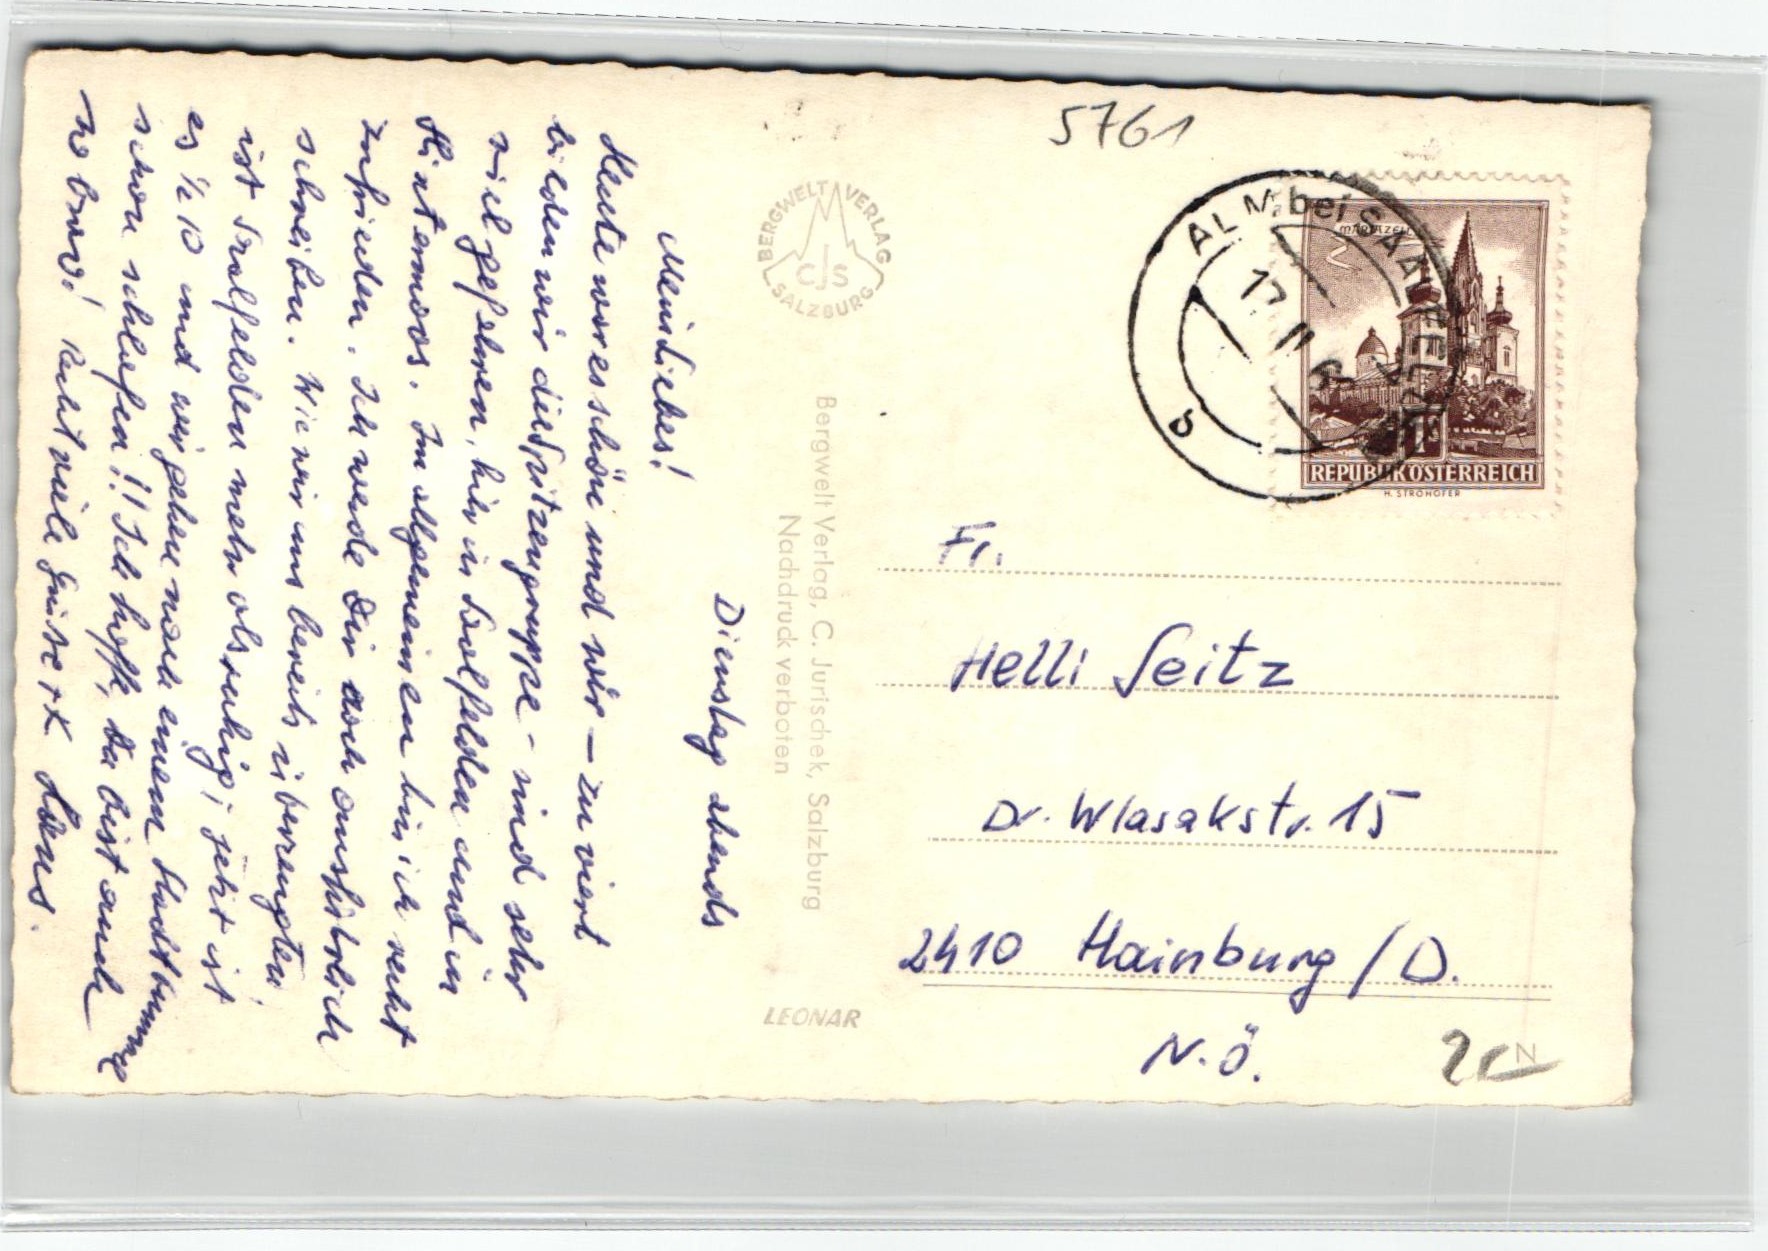 Dienstag abends
Mein Liebes!
Heute war es schön und wir – zu viert
bilden wir die Spitzengruppe – sind sehr
viel gefahren, hier in Saalfelden und in
Hintermoos. Im Allgemeinen bin ich recht
zufrieden. Ich werde Dir noch ausführlich
schreiben. Wie wir uns bereits überzeugten
ist Saalfelden mehr als ruhig; jetzt ist
es ½ 10 und wir gehen nach einem Stadtbummel
schon schlafen!! Ich hoffe, Du bist auch
so brav! Recht viele Grüße xx
BERGWELT VERLAG
CJS
SALZBURG
Bergwelt Verlag, C. Jurischek, Salzburg
Nachdruck verboten
LEONAR
5761
ALM bei SAALFELDEN
17. II. 6
b
MARIAZELL
1
REPUBLIK ÖSTERREICH
H. STROHOFER
Fr.
Helli Seitz
Dr. Wlasakstr. 15
2410 Hainburg / D.
N.Ö.
N